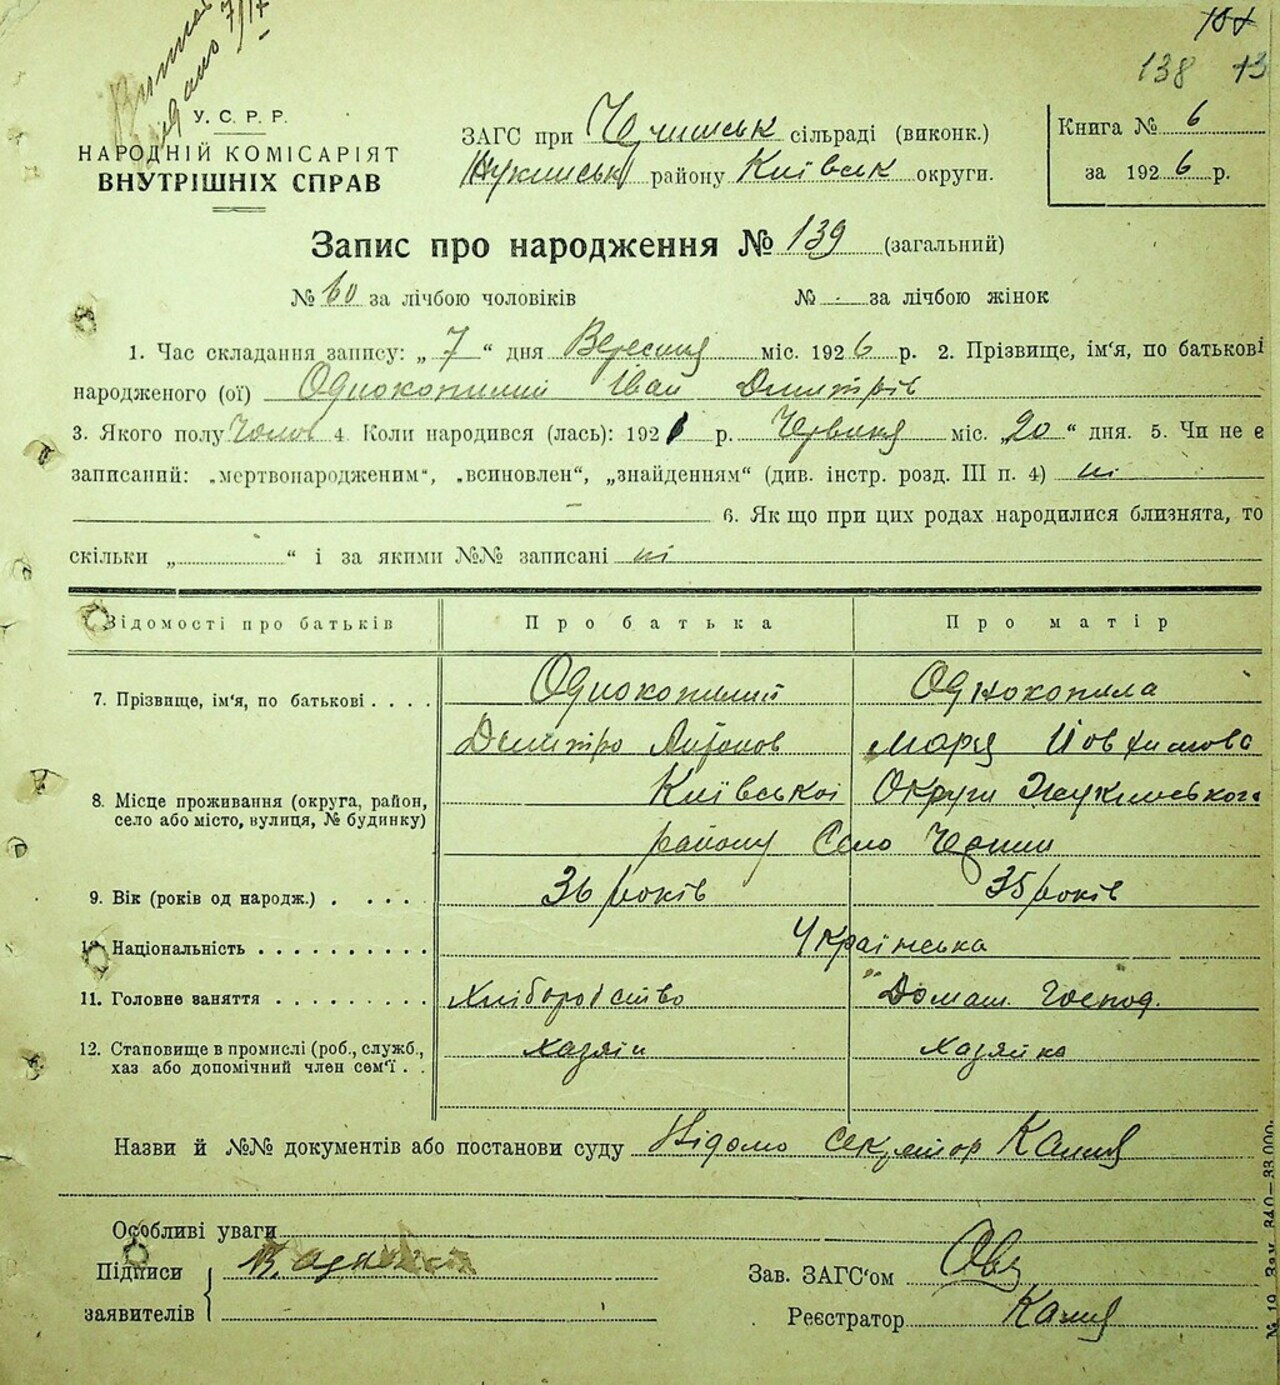 138 13
У. С. Р. Р.
НАРОДНІЙ КОМІСАРІЯТ
ВНУТРІШНІХ СПРАВ
ЗАГС при сільраді (виконк.)
району Київськ округи.
Книга № 6
за 1926 р.
Запис про народження № 139 (загальний)
№ 60 за лічбою чоловіків № — за лічбою жінок
1. Час складання запису: „ 7 “ дня Вересня міс. 1926 р. 2. Прізвище, ім'я, по батькові
народженого (ої) Однокопилий Іван Дмитрів
3. Якого полу Чолов 4. Коли народився (лась): 192 р. Червня міс. „20“ дня. 5. Чи не є
записаний: „мертвонародженим“, „всиновлен“, „знайденням“ (див. інстр. розд. III п. 4) ні
— 6. Як що при цих родах народилися близнята, то
скільки „ “ і за якими №№ записані ні
Відомості про батьків Про батька Про матір
7. Прізвище, ім'я, по батькові . . . . Однокопилий Однокопила
Дмитро Антонов Марія Йовхимова
8. Місце проживання (округа, район, село або місто, вулиця, № будинку) Київської Округи
району Село
9. Вік (років од народж.) . . . . . 36 років 35 років
10. Національність . . . . . . . . . . Українська
11. Головне заняття . . . . . . . . . Хліборобство Домаш. Господ.
12. Становище в промислі (роб., служб., хаз або допомічний член сем'ї . . хазяїн хазяйка
Назви й №№ документів або постанови суду Відомо секретар
Особливі уваги
Підписи
заявителів
Зав. ЗАГС'ом
Реєстратор
№ 19. Зам. 340—33.000.